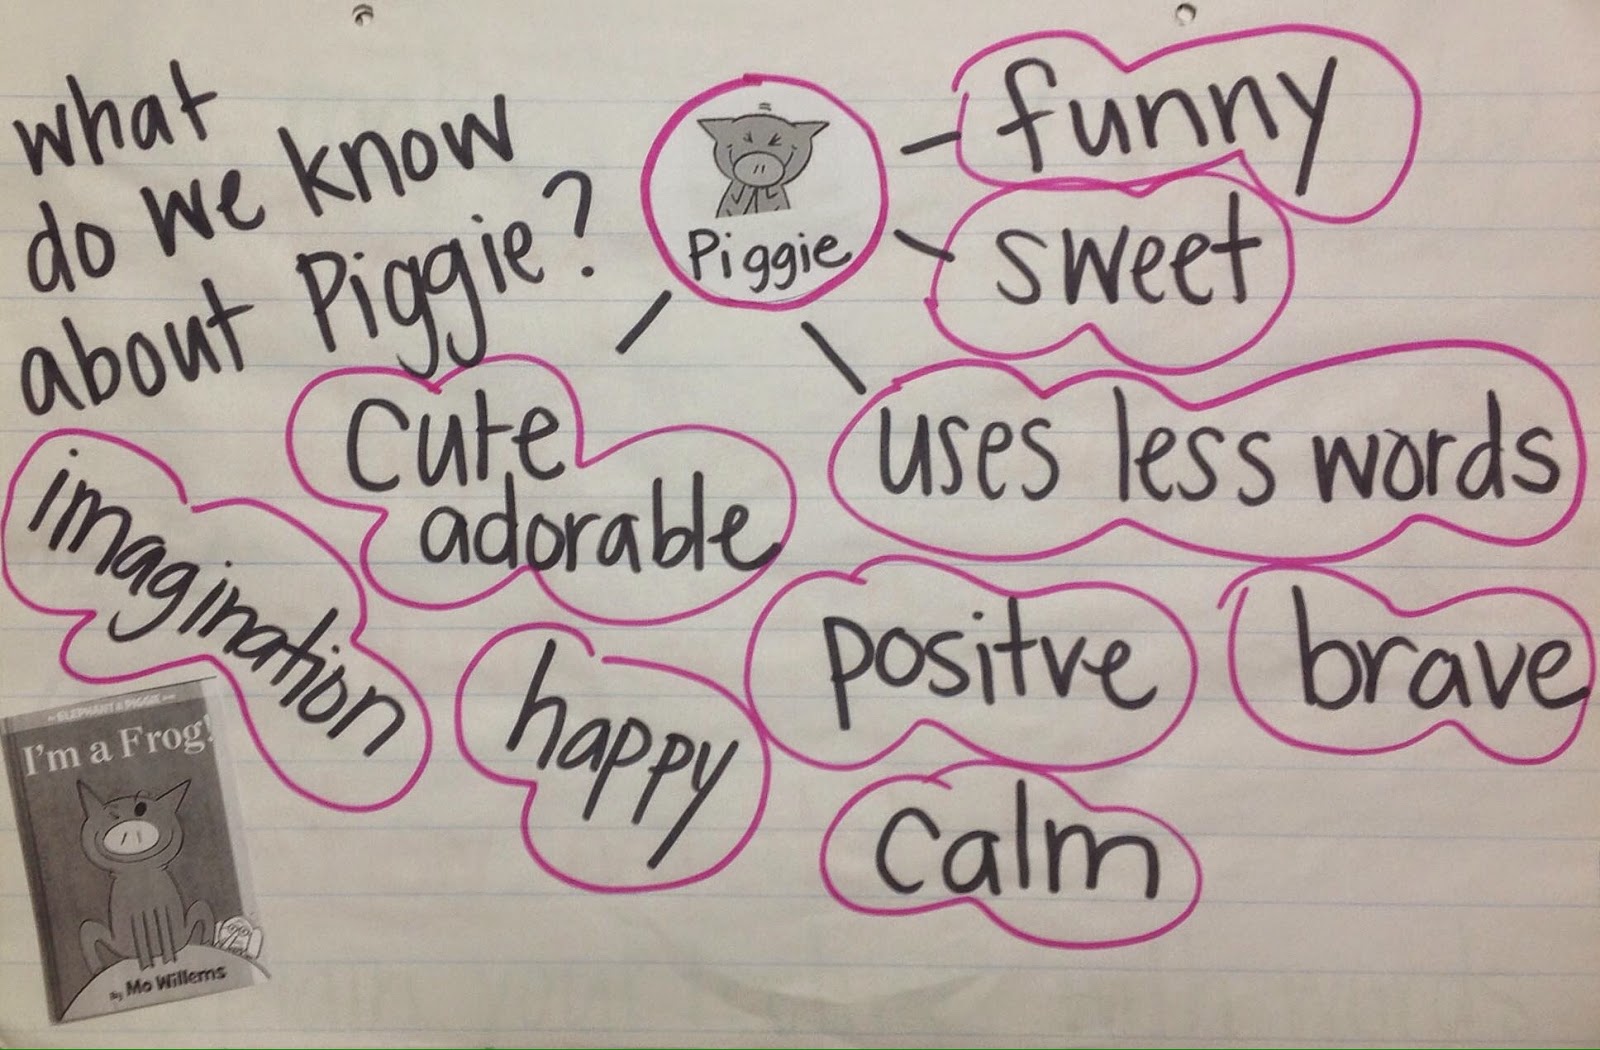 what
do we know
about Piggie?
Piggie
funny
sweet
uses less words
cute
adorable
imagination
happy
positve
brave
calm
An ELEPHANT & PIGGIE Book
I'm a Frog!
By Mo Willems